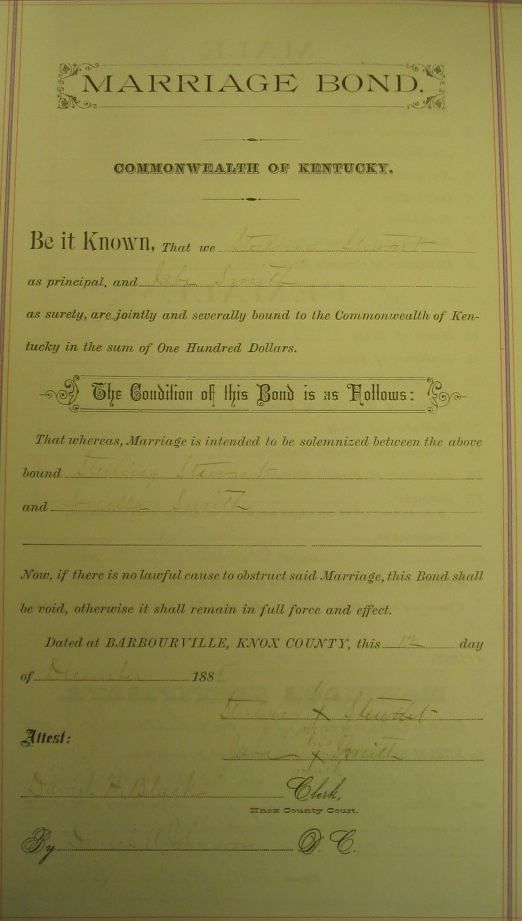 MARRIAGE BOND.
COMMONWEALTH OF KENTUCKY.
Be it Known, That we Stewart
as principal, and Smith
as surety, are jointly and severally bound to the Commonwealth of Ken-
tucky in the sum of One Hundred Dollars.
The Condition of this Bond is as Follows:
That whereas, Marriage is intended to be solemnized between the above
bound Sterling Stewart
and Smith
Now, if there is no lawful cause to obstruct said Marriage, this Bond shall
be void, otherwise it shall remain in full force and effect.
Dated at BARBOURVILLE, KNOX COUNTY, this 12 day
of December 188
Sterling X Stewart
mark
Attest:
X Smith
David H. Clerk,
Knox County Court.
By D. C.